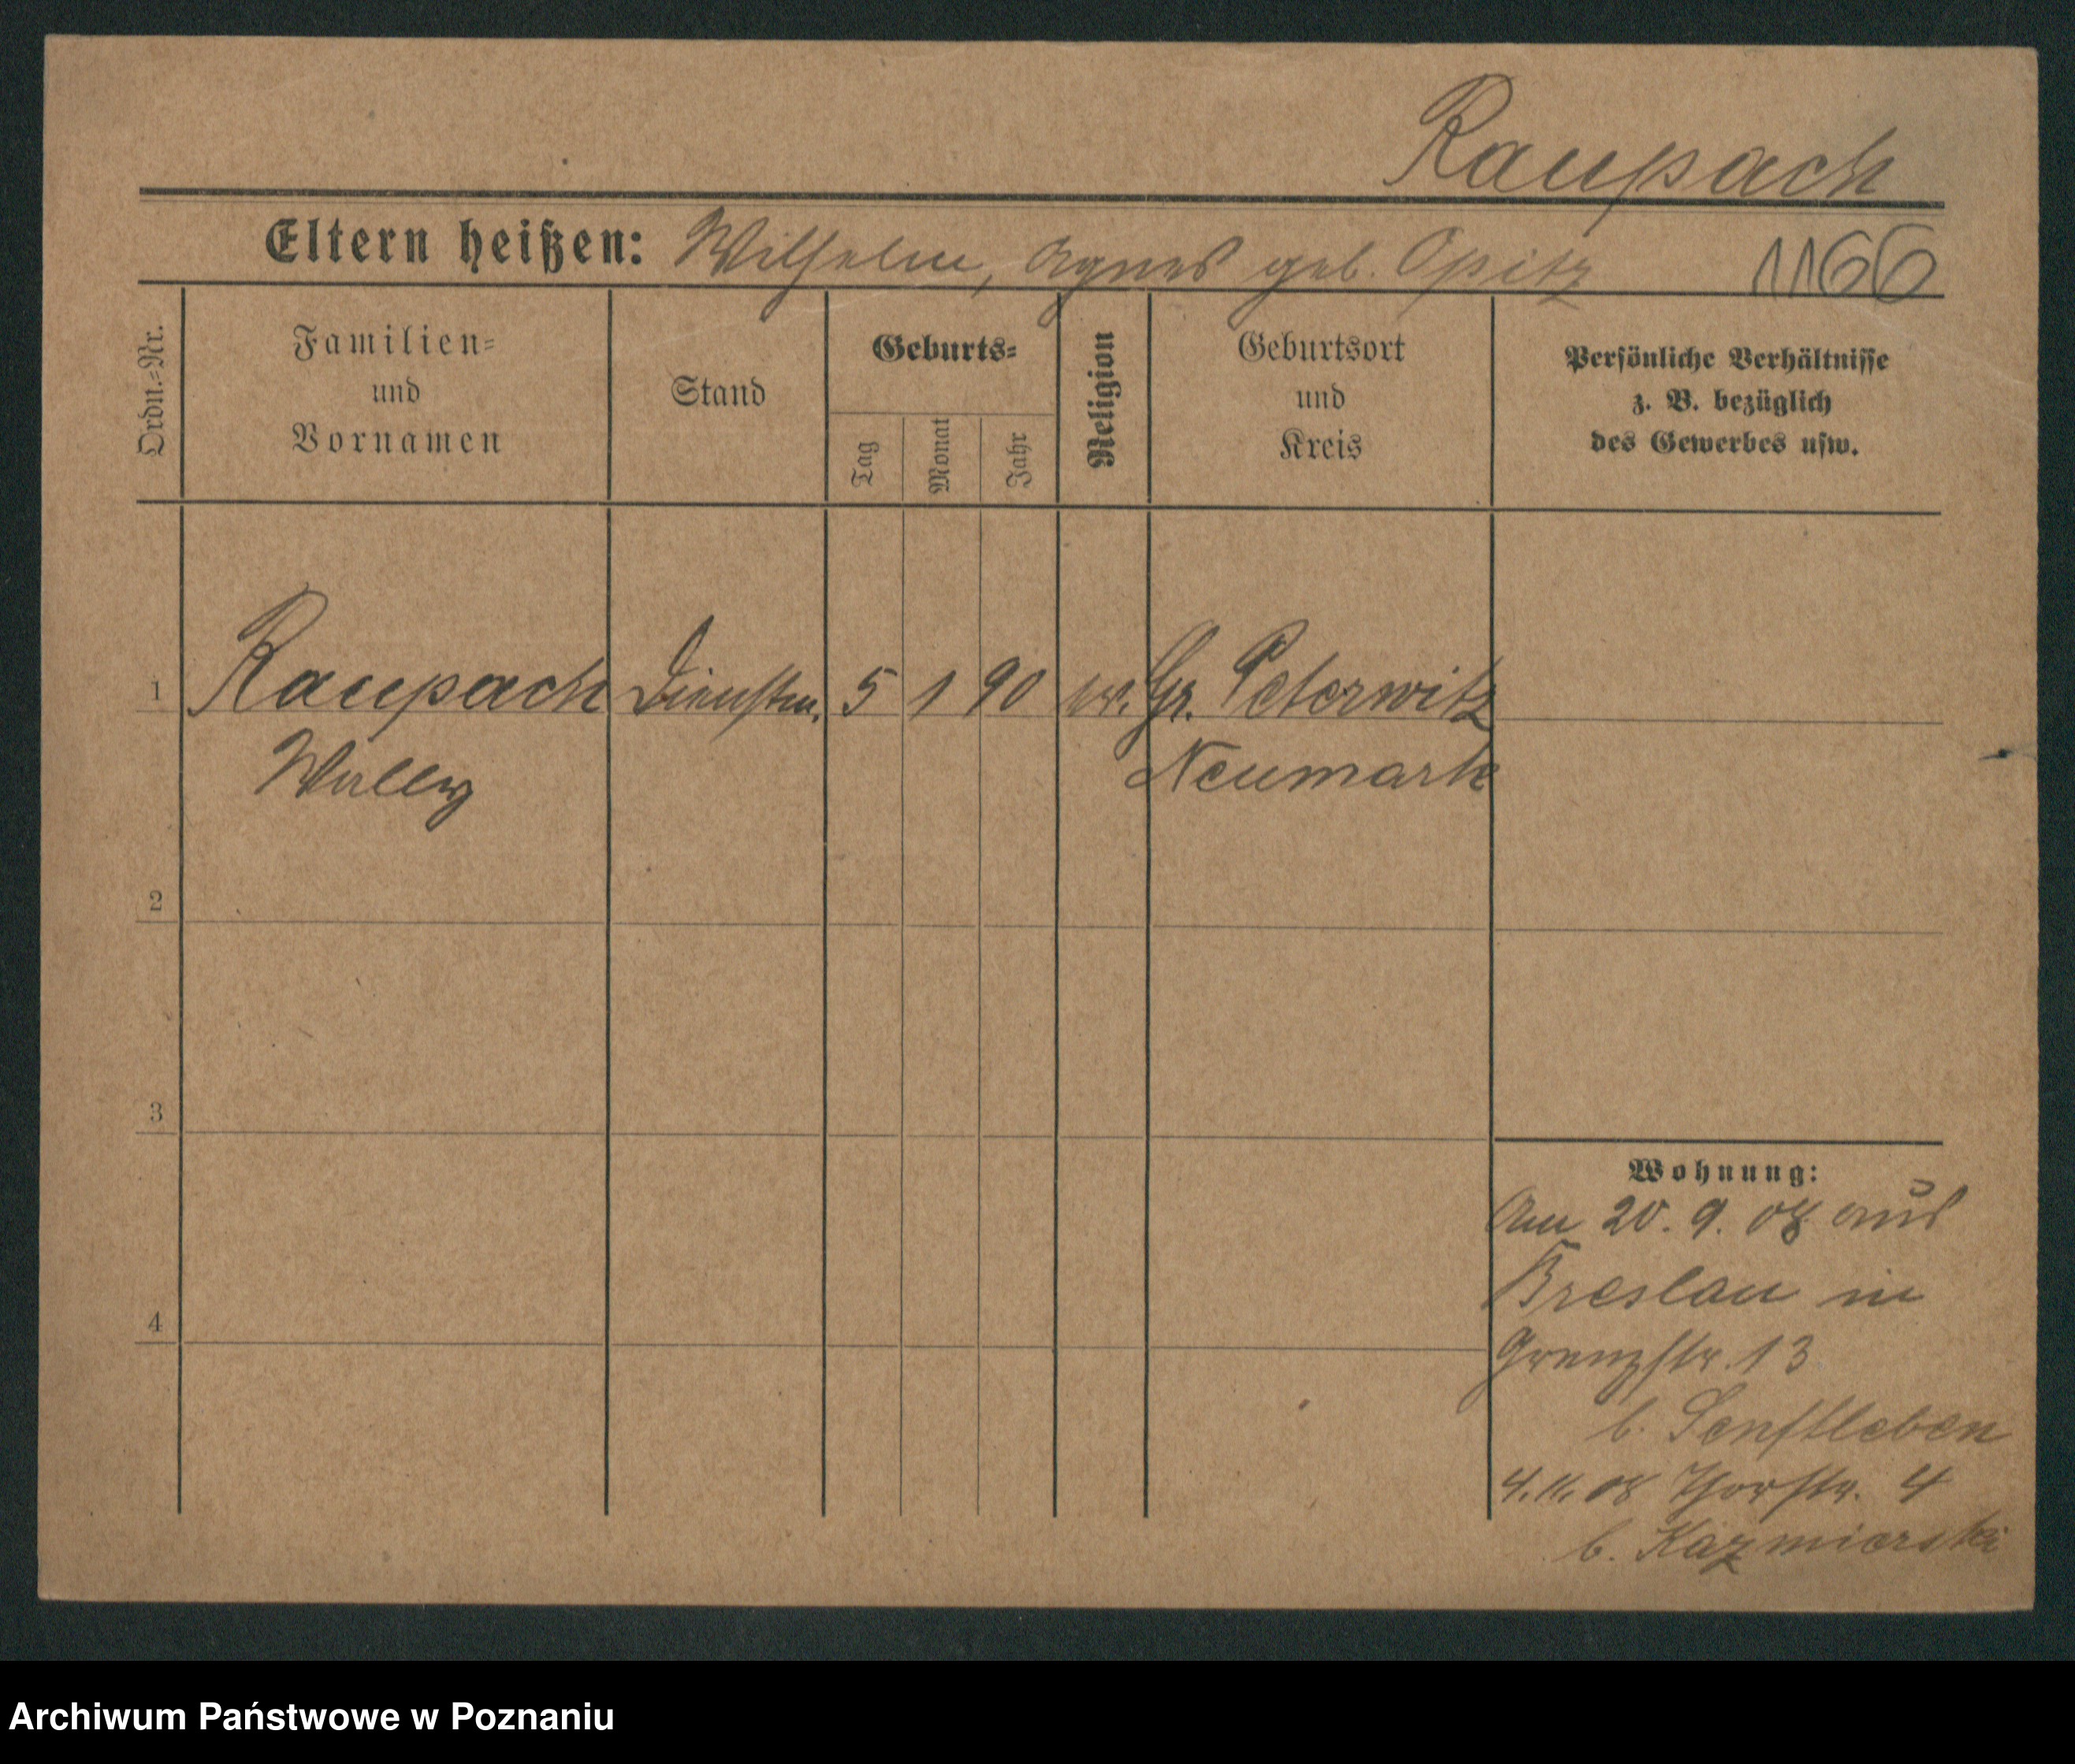 Raupach
Eltern heißen: Wilhelm, Agnes geb. Opitz 1166
Ordn.-Nr.
Familien-
und
Vornamen
Stand
Geburts-
Tag
Monat
Jahr
Religion
Geburtsort
und
Kreis
Persönliche Verhältnisse
z. B. bezüglich
des Gewerbes usw.
1 Raupach Dienstm. 5 1 90 ev. Gr. Peterwitz
Wally Neumark
2
3
4
Wohnung:
Am 20. 9. 08 aus
Breslau in
Grenzstr. 13
b. Senftleben
4. 11. 08 Thorstr. 4
b. Kazmierski
Archiwum Państwowe w Poznaniu